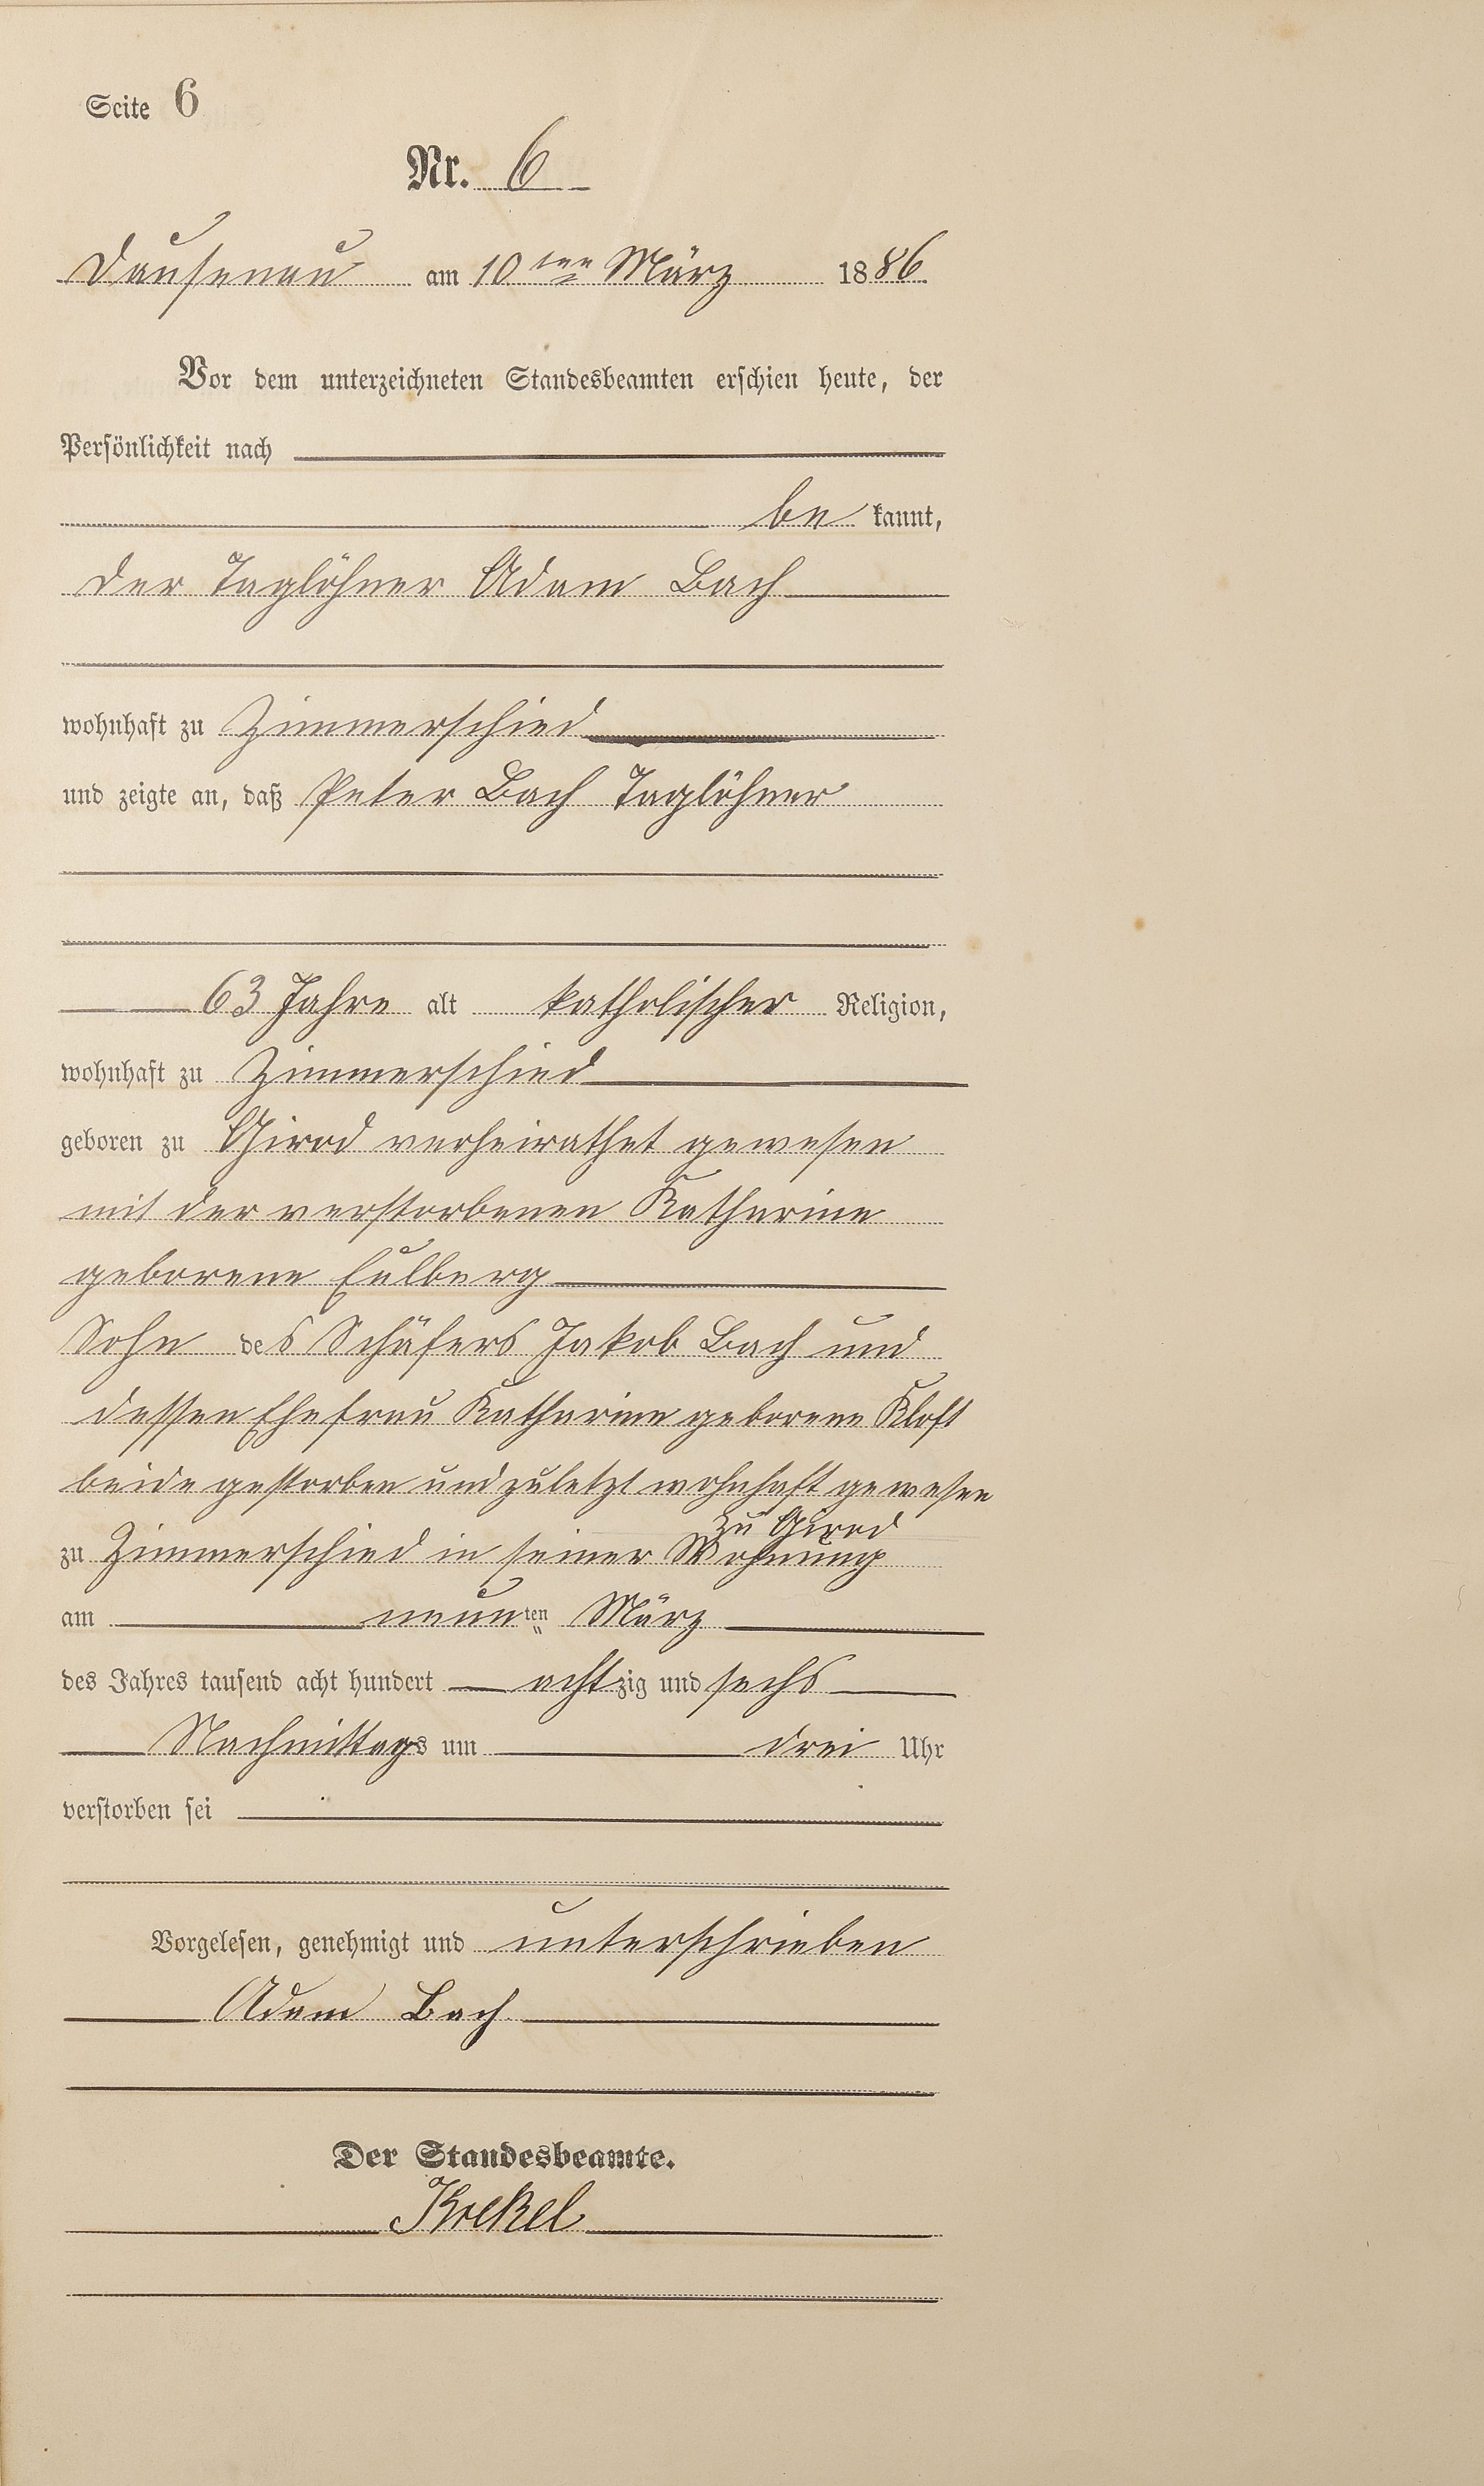 Seite 6
Nr. 6
Dausenau am 10ten März 1886.
Vor dem unterzeichneten Standesbeamten erschien heute, der
Persönlichkeit nach
be kannt,
der Taglöhner Adam Bach
wohnhaft zu Zimmerschied
und zeigte an, daß Peter Bach Taglöhner
63 Jahre alt katholischer Religion,
wohnhaft zu Zimmerschied
geboren zu Girod verheirathet gewesen
mit der verstorbenen Katharine
geborene Eulberg
Sohn des Schäfers Jakob Bach und
dessen Ehefrau Katharine geborene Kloft
beide gestorben und zuletzt wohnhaft gewesen
zu Girod
zu Zimmerschied in seiner Wohnung
am neunten März
des Jahres tausend acht hundert achtzig und sechs
Nachmittags um drei Uhr
verstorben sei
Vorgelesen, genehmigt und unterschrieben
Adam Bach.
Der Standesbeamte.